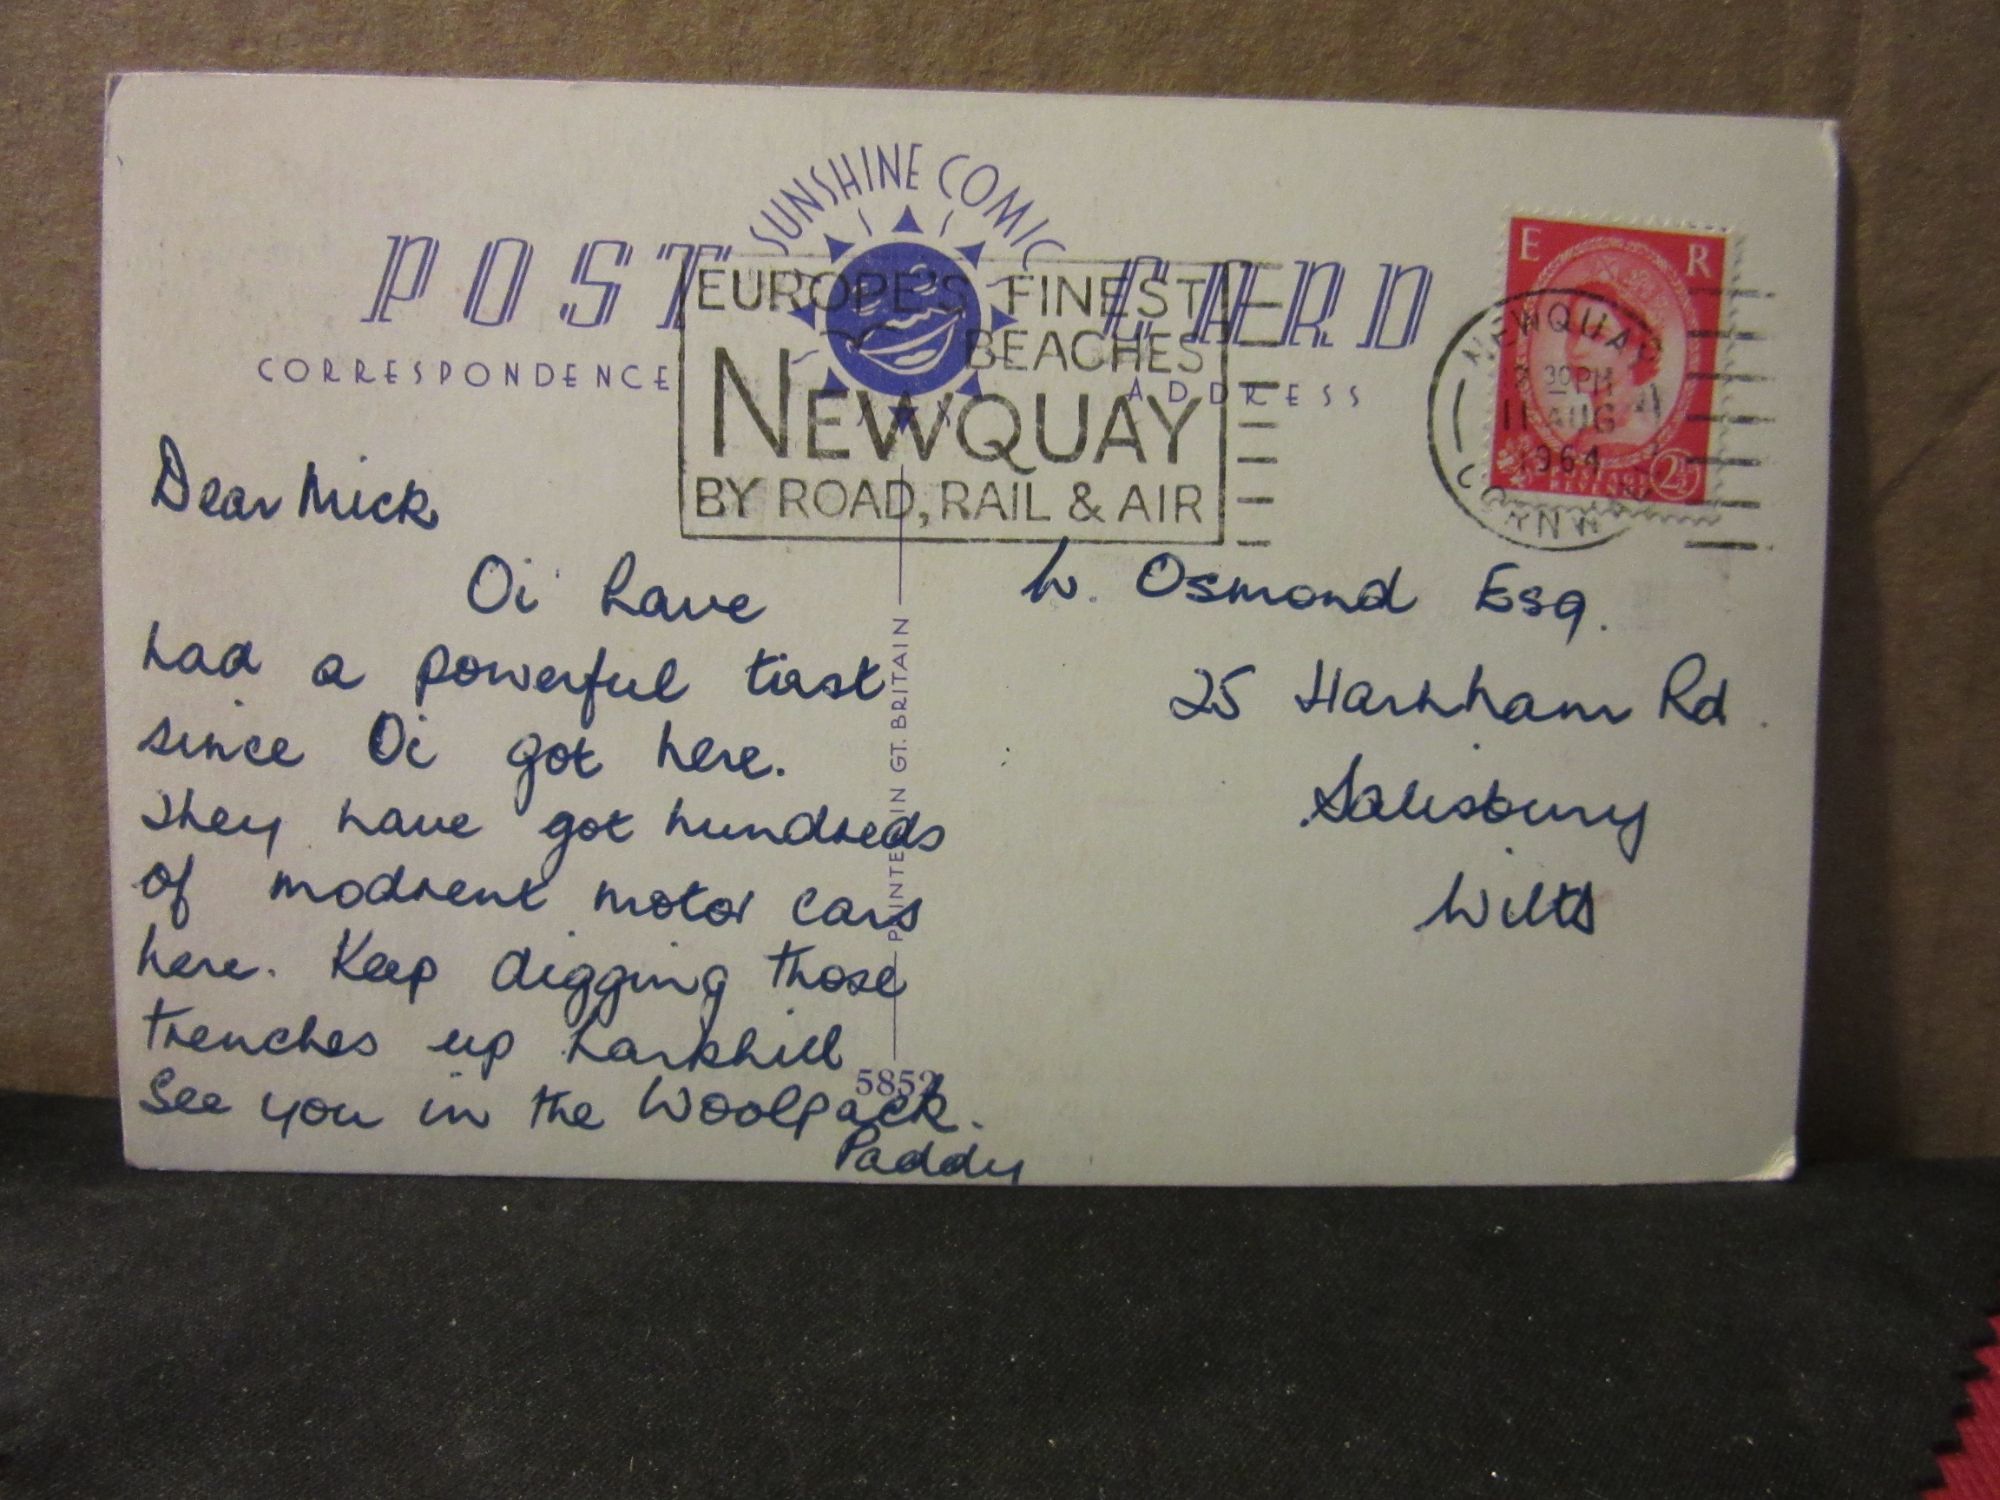 SUNSHINE COMIC
POST CARD
CORRESPONDENCE
ADDRESS
EUROPE'S FINEST
BEACHES
NEWQUAY
BY ROAD, RAIL & AIR
E R
NEWQUAY
30 PM
11 AUG
1964
CORNWALL
REVENUE
2½
Dear Mick
Oi have
had a powerful tirst
since Oi got here.
They have got hundreds
of modrent motor cars
here. Keep digging those
trenches up Larkhill
See you in the Woolpack.
Paddy
W. Osmond Esq.
25 Harnham Rd
Salisbury
Wilts
PRINTED IN GT. BRITAIN
5852